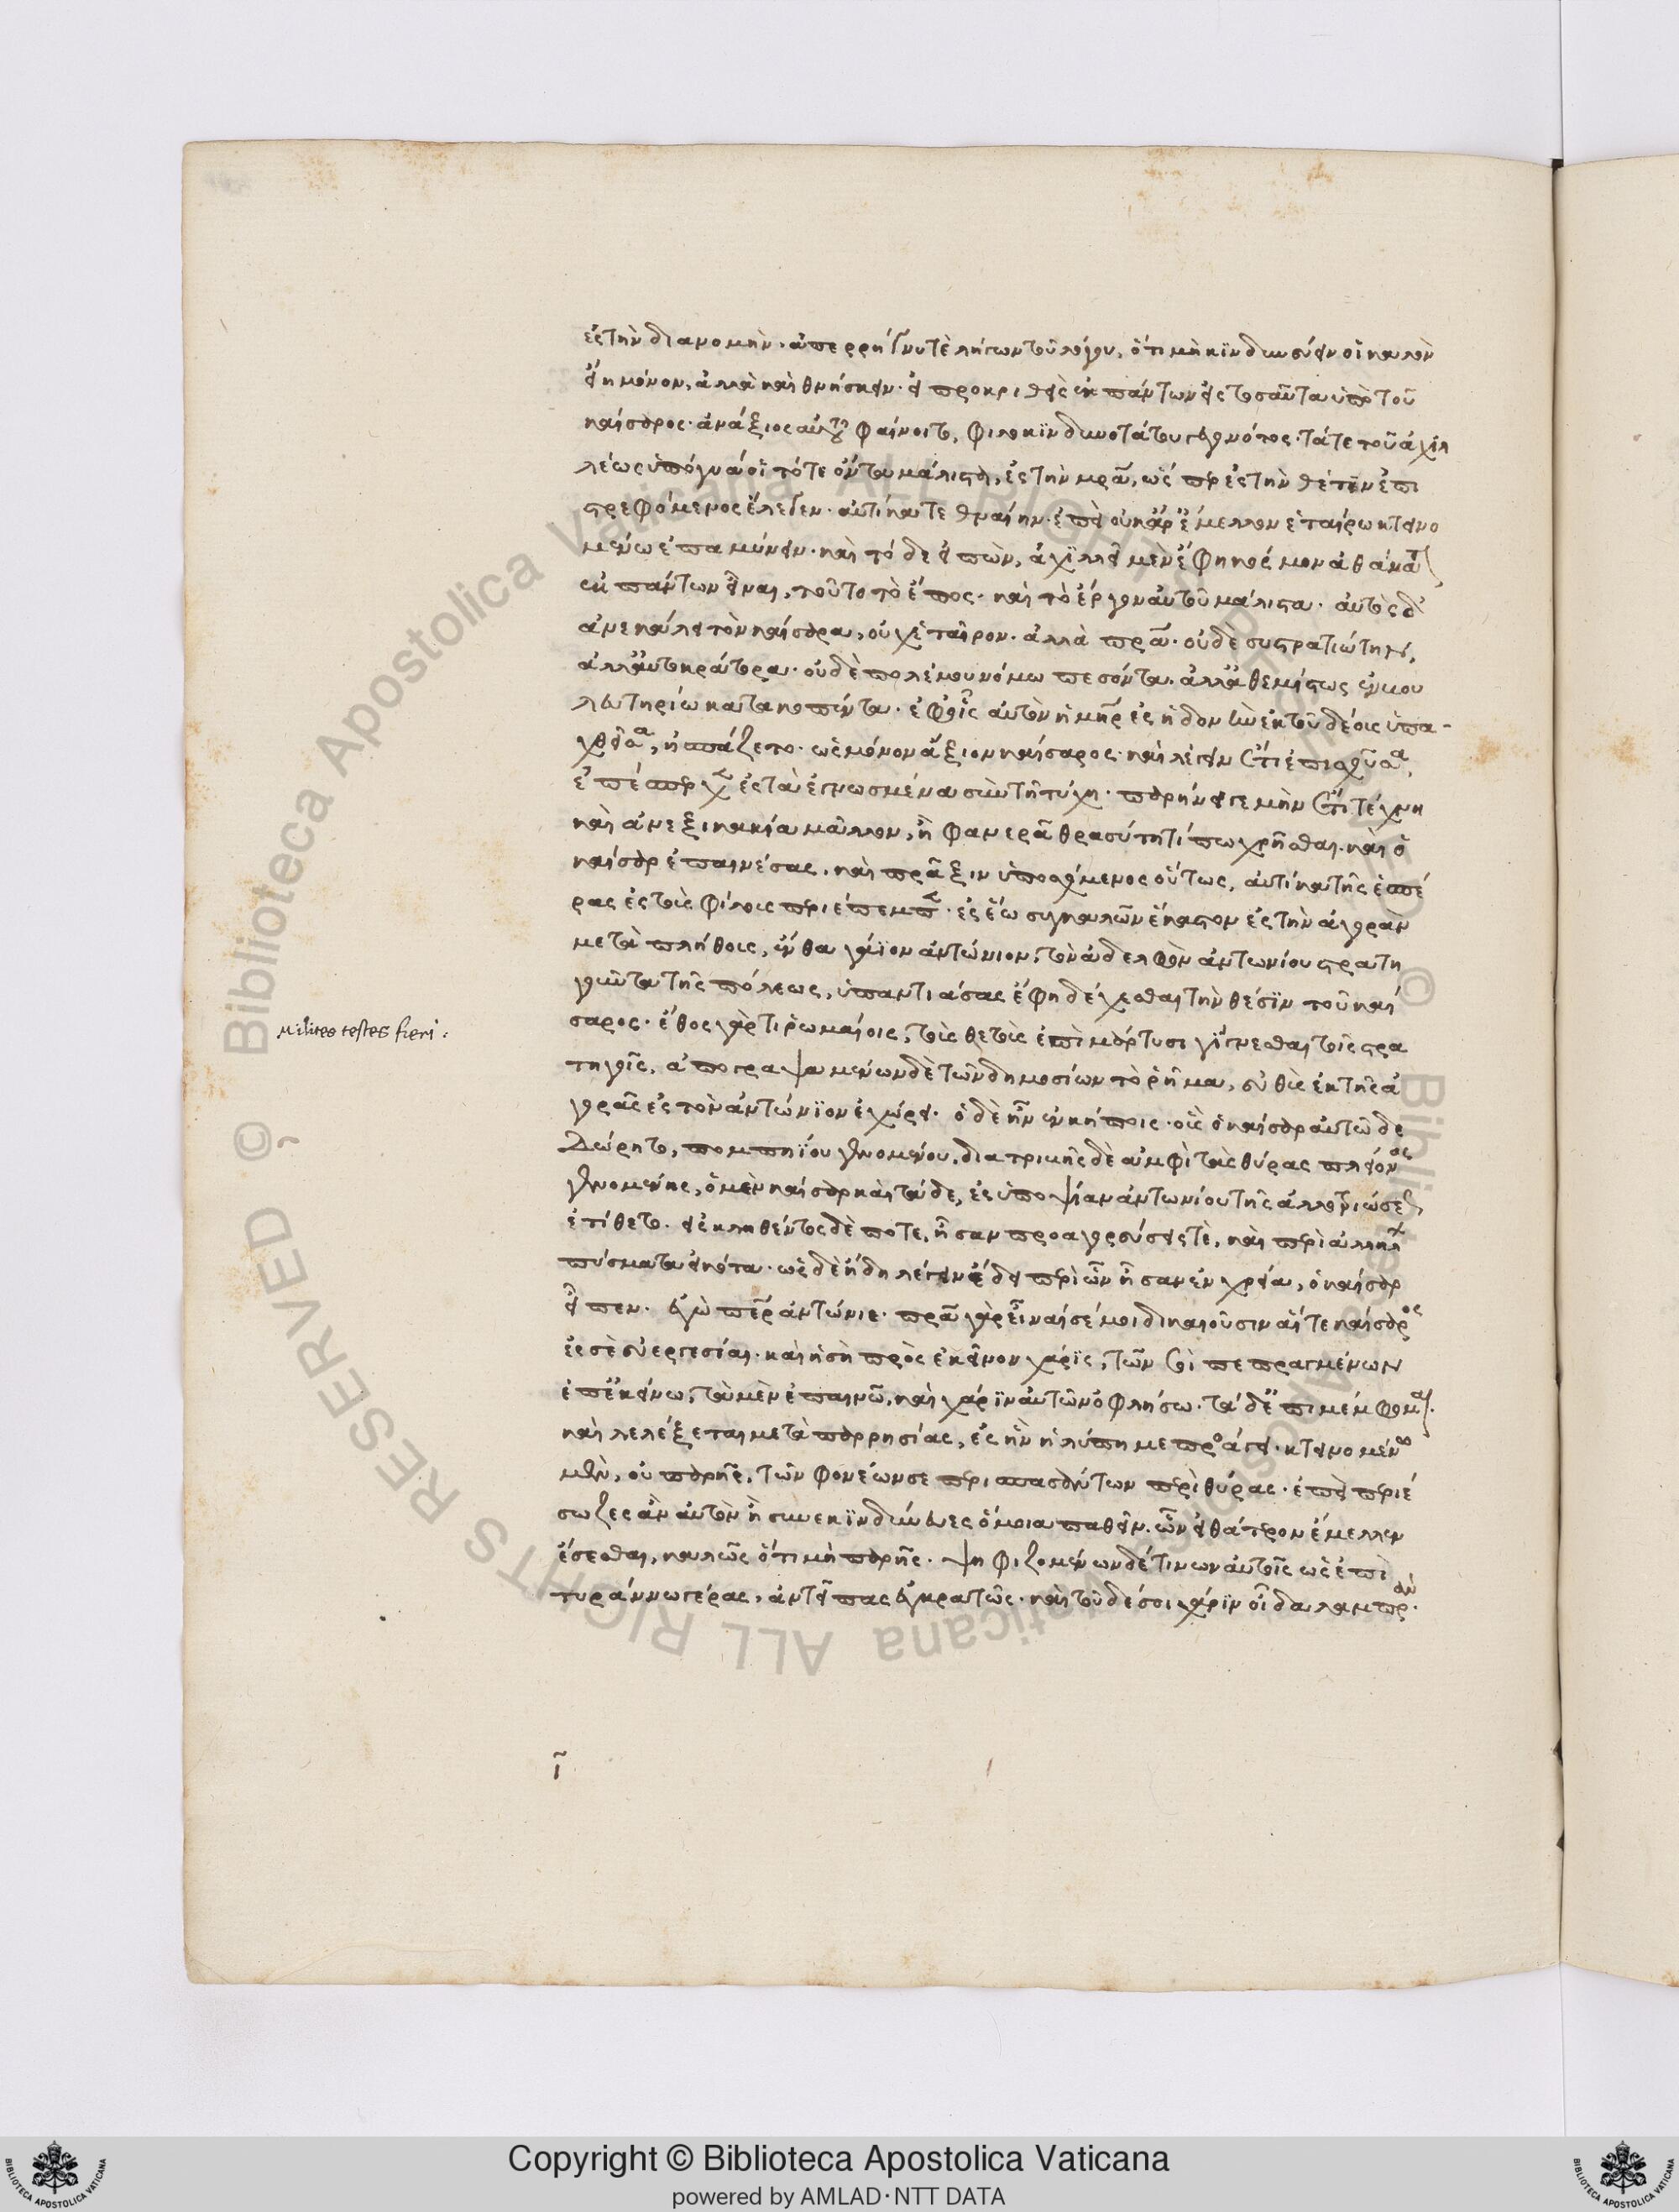 ἐς τὴν διανομὴν. ἀπερρήγνυ τὲ λήγων τοῦ λόγου, ὅτι μὴ κϊνδυνεύειν οἱ καλὸν
εἴη μόνον, ἀλλὰ καὶ θνήσκειν. εἰ προκριθεὶς ἐκ πάντων εἰς τοσαῦτα ὑπὸ τοῦ
καίσαρος. ἀνάξιος αὐτοῦ φαίνοιτο, φιλοκϊνδυνοτάτου γεγονότος. τά τε τοῦ ἀχιλ
λέως ὑπόγυά οἱ τότε ὄντα μάλιστα, ἐς τὴν μρᾶ, ὥσπερ ἐς τὴν θέτϊν ἐπι
στρεφόμενος ἔλεγεν. αὐτίκα τεθναίην. ἐπεὶ οὐκ ἄρ ἔμελλον ἑταίρω κτεινο
μένω ἐπαμύνειν. καὶ τόδε εἰπὼν, ἀχϊλλεῖ μὲν ἔφη κόσμον ἀθάνατον
ἐκ πάντων εἶναι, τοῦτο τὸ ἔπος. καὶ τὸ ἔργον αὐτοῦ μάλιστα. αὐτὸς δ'
ἀνεκάλει τὸν καίσαρα, οὐχ ἑταῖρον. ἀλλὰ πρᾶ. οὐδὲ συστρατιώτην,
ἀλλ' αὐτοκράτορα. οὐδὲ πολέμου νόμω πεσόντα. ἀλλ' ἀθεμίστως ἐν βου
λευτηρίω κατακοπέντα. ἐφ' οἷς αὐτὸν ἡ μηρ ἐς ἡδονὴν ἐκ τοῦ δέους ὑπα-
χθεῖσα, ἠσπάζετο. ὡς μόνον ἄξιον καίσαρος. καὶ λέγειν ἔτι ἐπισχοῦσα,
ἐπέσπερχεν ἐς τὰ ἐγνωσμένα σὺν τῆ τύχη. παρήνει γε μὴν ἔτι τέχνη
καὶ ἀνεξικακία μᾶλλον, ἢ φανερᾶ θρασύτητί πω χρῆσθαι. καὶ ὁ
καίσαρ ἐπαινέσας. καὶ πράξειν ὑποσχόμενος οὕτως, αὐτίκα τῆς ἑσπέ
ρας ἐς τοὺς φίλους περιέπεμπεν. ἐς ἕω συγκαλῶν ἕκαστον ἐς τὴν ἀγορὰν
μετὰ πλήθους, ἔνθα γάϊον ἀντώνιον, τὸν ἀδελφὸν ἀντωνίου στρατη
γοῦντα τῆς πόλεως, ὑπαντιάσας ἔφη δέχεσθαι τὴν θέσϊν τοῦ καί
σαρος. ἔθος γάρ τι ῥωμαίοις, τοὺς θετοὺς ἐπὶ μάρτυσι γΐγνεσθαι τοῖς στρα
τηγοῖς, ἀπογραψαμένων δὲ τῶν δημοσίων τὸ ῥῆμα, εὐθὺς ἐκ τῆς ἀ
γορᾶς ἐς τὸν ἀντώνϊον ἐχώρει. ὁ δὲ ἦν ἐν κήποις. οὓς ὁ καίσαρ αὐτῶ δε
δώρητο, πομπηΐου γενομένου. διατριβῆς δὲ ἀμφὶ τὰς θύρας πλείονος
γενομένης, ὁ μὲν καίσαρ καὶ τάδε, ἐς ὑποψίαν ἀντωνίου τῆς ἀλλοτριώσεως
ἐτίθετο. εἰσκληθέντος δὲ ποτε, ἦσαν προσαγορεύσεις τὲ, καὶ περὶ ἀλλήλων
πύσματα εἰκότα. ὡς δὲ ἤδη λέγειν ἔδει περὶ ὧν ἦσαν ἐν χρεία, ὁ καίσαρ
εἶπεν. ἐγὼ περ ἀντώνιε. πρᾶ γὰρ εἶναί σέ μοι δικαιοῦσιν αἵ τε καίσαρος
ἐς σὲ εὐεργεσίαι. καὶ ἡ σὴ πρὸς ἐκεῖνον χάρϊς, τῶν σοὶ πεπραγμένων
ἐπ' ἐκείνω, τὰ μὲν ἐπαινῶ, καὶ χάρϊν αὐτῶν ὀφλήσω. τὰ δ' ἐπιμέμφομαι.
καὶ λελέξεται μετὰ παρρησίας, ἐς ἣν ἡ λύπη με προάγει. κτεινομένω
μὲν, οὐ παρῆς, τῶν φονέων σε περισπασάντων περὶ θύρας. ἐπεὶ περιέ
σωζες ἂν αὐτὸν ἢ συνεκϊνδύνευες ὅμοια παθεῖν. ὧν εἰ θάτερον ἔμελλεν
ἔσεσθαι, καλῶς ὅτι μὴ παρῆς. ψηφιζομένων δέ τινων αὐτοῖς ὡς ἐπὶ
τυράννω γέρας, ἀντεῖπας ἐγκρατῶς. καὶ τοῦδέ σοι χάρϊν οἶδα λαμπρὰν.
Milites testes fieri:
ῑ